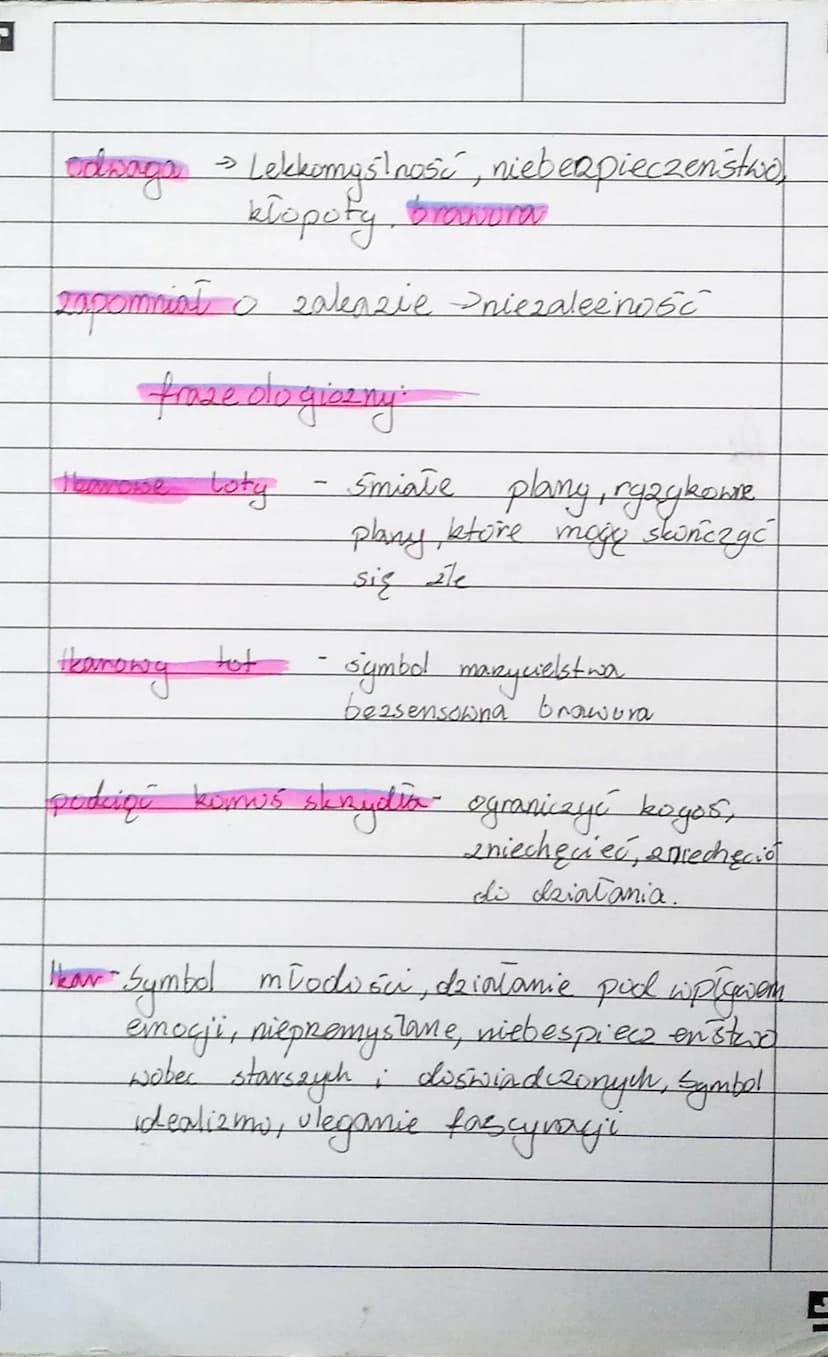 odwaga → Lekkomyślność, niebezpieczeństwo,
kłopoty, brawura
zapomniał o zakazie → niezależność
frazeologiczny:
Ikarowe loty - śmiałe plany, ryzykowne
plany, które mogę skończyć
się źle
Ikarowy lot - symbol marzycielstwa
bezsensowna brawura
podciąć komuś skrzydła - ograniczyć kogoś,
zniechęcieć, zniechęcić
do działania.
Ikar - Symbol młodości, działanie pod wpływem
emocji, nieprzemyślane, niebespieczeństwo
wobec starszych i doświadczonych, symbol
idealizmu, uleganie fascynacji